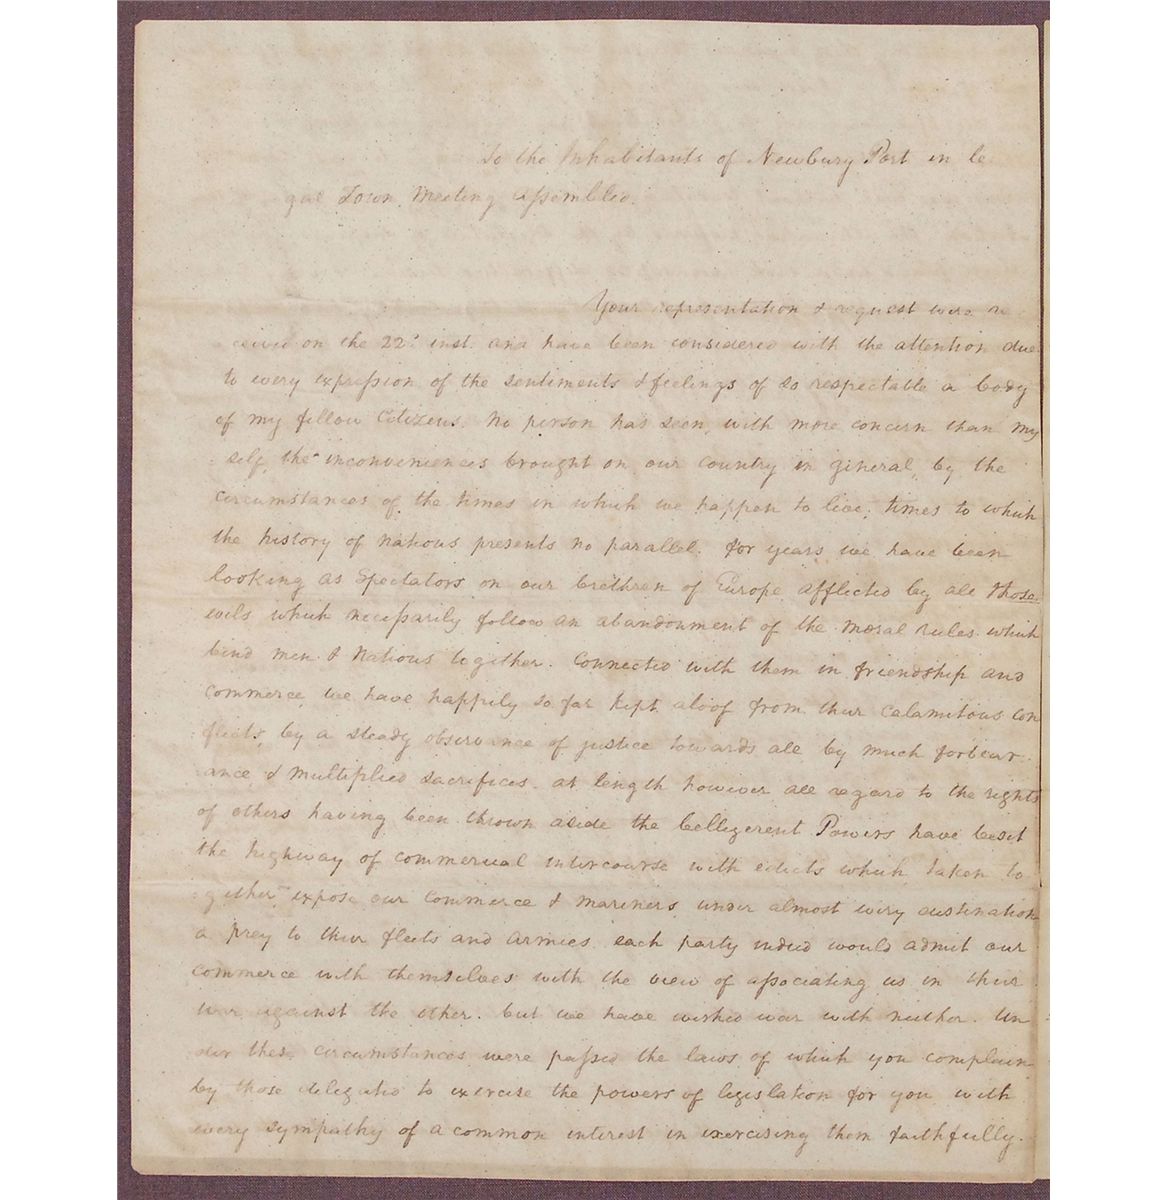 To the Inhabitants of Newbury Port in le
gal Town Meeting assembled.
Your representation & request were re
ceived on the 22d inst. and have been considered with the attention due
to every expression of the sentiments & feelings of so respectable a body
of my fellow Citizens. No person has seen, with more concern than my
self, the inconveniences brought on our country in general, by the
circumstances of the times in which we happen to live; times to which
the history of nations presents no parallel. for years we have been
looking as Spectators on our brethren of Europe afflicted by all those
evils which necessarily follow an abandonment of the moral rules which
bind men & Nations together. Connected with them in friendship and
commerce, we have happily so far kept aloof from their calamitous con
flicts, by a steady observance of justice towards all by much forbear
ance & multiplied sacrifices. at length however all regard to the rights
of others having been thrown aside the belligerent Powers have beset
the highway of commercial intercourse with edicts which, taken to
gether, expose our commerce & mariners, under almost every destination
a prey to their fleets and armies. each party indeed would admit our
commerce with themselves with the view of associating us in their
war against the other. but we have wished war with neither. Un
der these circumstances were passed the laws of which you complain
by those delegated to exercise the powers of legislation for you with
every sympathy of a common interest in exercising them faithfully.